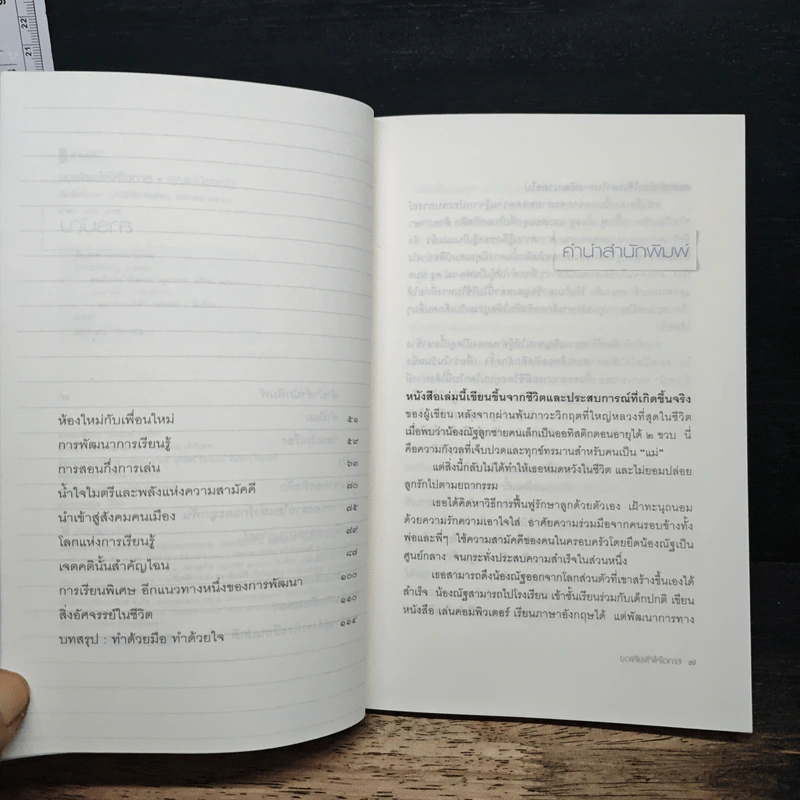 ห้องใหม่กับเพื่อนใหม่ ๕๑
การพัฒนาการเรียนรู้ ๕๙
การสอนกึ่งการเล่น ๖๓
น้ำใจไมตรีและพลังแห่งความสามัคคี ๗๐
นำเข้าสู่สังคมคนเมือง ๗๕
โลกแห่งการเรียนรู้ ๗๙
เจตคตินั้นสำคัญไฉน ๘๗
การเรียนพิเศษ อีกแนวทางหนึ่งของการพัฒนา ๑๐๐
สิ่งอัศจรรย์ในชีวิต ๑๑๐
บทสรุป : ทำด้วยมือ ทำด้วยใจ ๑๑๔
คำนำสำนักพิมพ์
หนังสือเล่มนี้เขียนขึ้นจากชีวิตและประสบการณ์ที่เกิดขึ้นจริง
ของผู้เขียน หลังจากผ่านพ้นภาวะวิกฤตที่ใหญ่หลวงที่สุดในชีวิต
เมื่อพบว่าน้องณัฐลูกชายคนเล็กเป็นออทิสติกตอนอายุได้ ๒ ขวบ นี่
คือความกังวลที่เจ็บปวดและทุกข์ทรมานสำหรับคนเป็น "แม่"
แต่สิ่งนี้กลับไม่ได้ทำให้เธอหมดหวังในชีวิต และไม่ยอมปล่อย
ลูกรักไปตามยถากรรม
เธอได้คิดหาวิธีการฟื้นฟูรักษาลูกด้วยตัวเอง เฝ้าทะนุถนอม
ด้วยความรักความเอาใจใส่ อาศัยความร่วมมือจากคนรอบข้างทั้ง
พ่อและพี่ๆ ใช้ความสามัคคีของคนในครอบครัวโดยยึดน้องณัฐเป็น
ศูนย์กลาง จนกระทั่งประสบความสำเร็จในส่วนหนึ่ง
เธอสามารถดึงน้องณัฐออกจากโลกส่วนตัวที่เขาสร้างขึ้นเองได้
สำเร็จ น้องณัฐสามารถไปโรงเรียน เข้าชั้นเรียนร่วมกับเด็กปกติ เขียน
หนังสือ เล่นคอมพิวเตอร์ เรียนภาษาอังกฤษได้ แต่พัฒนาการทาง
๗